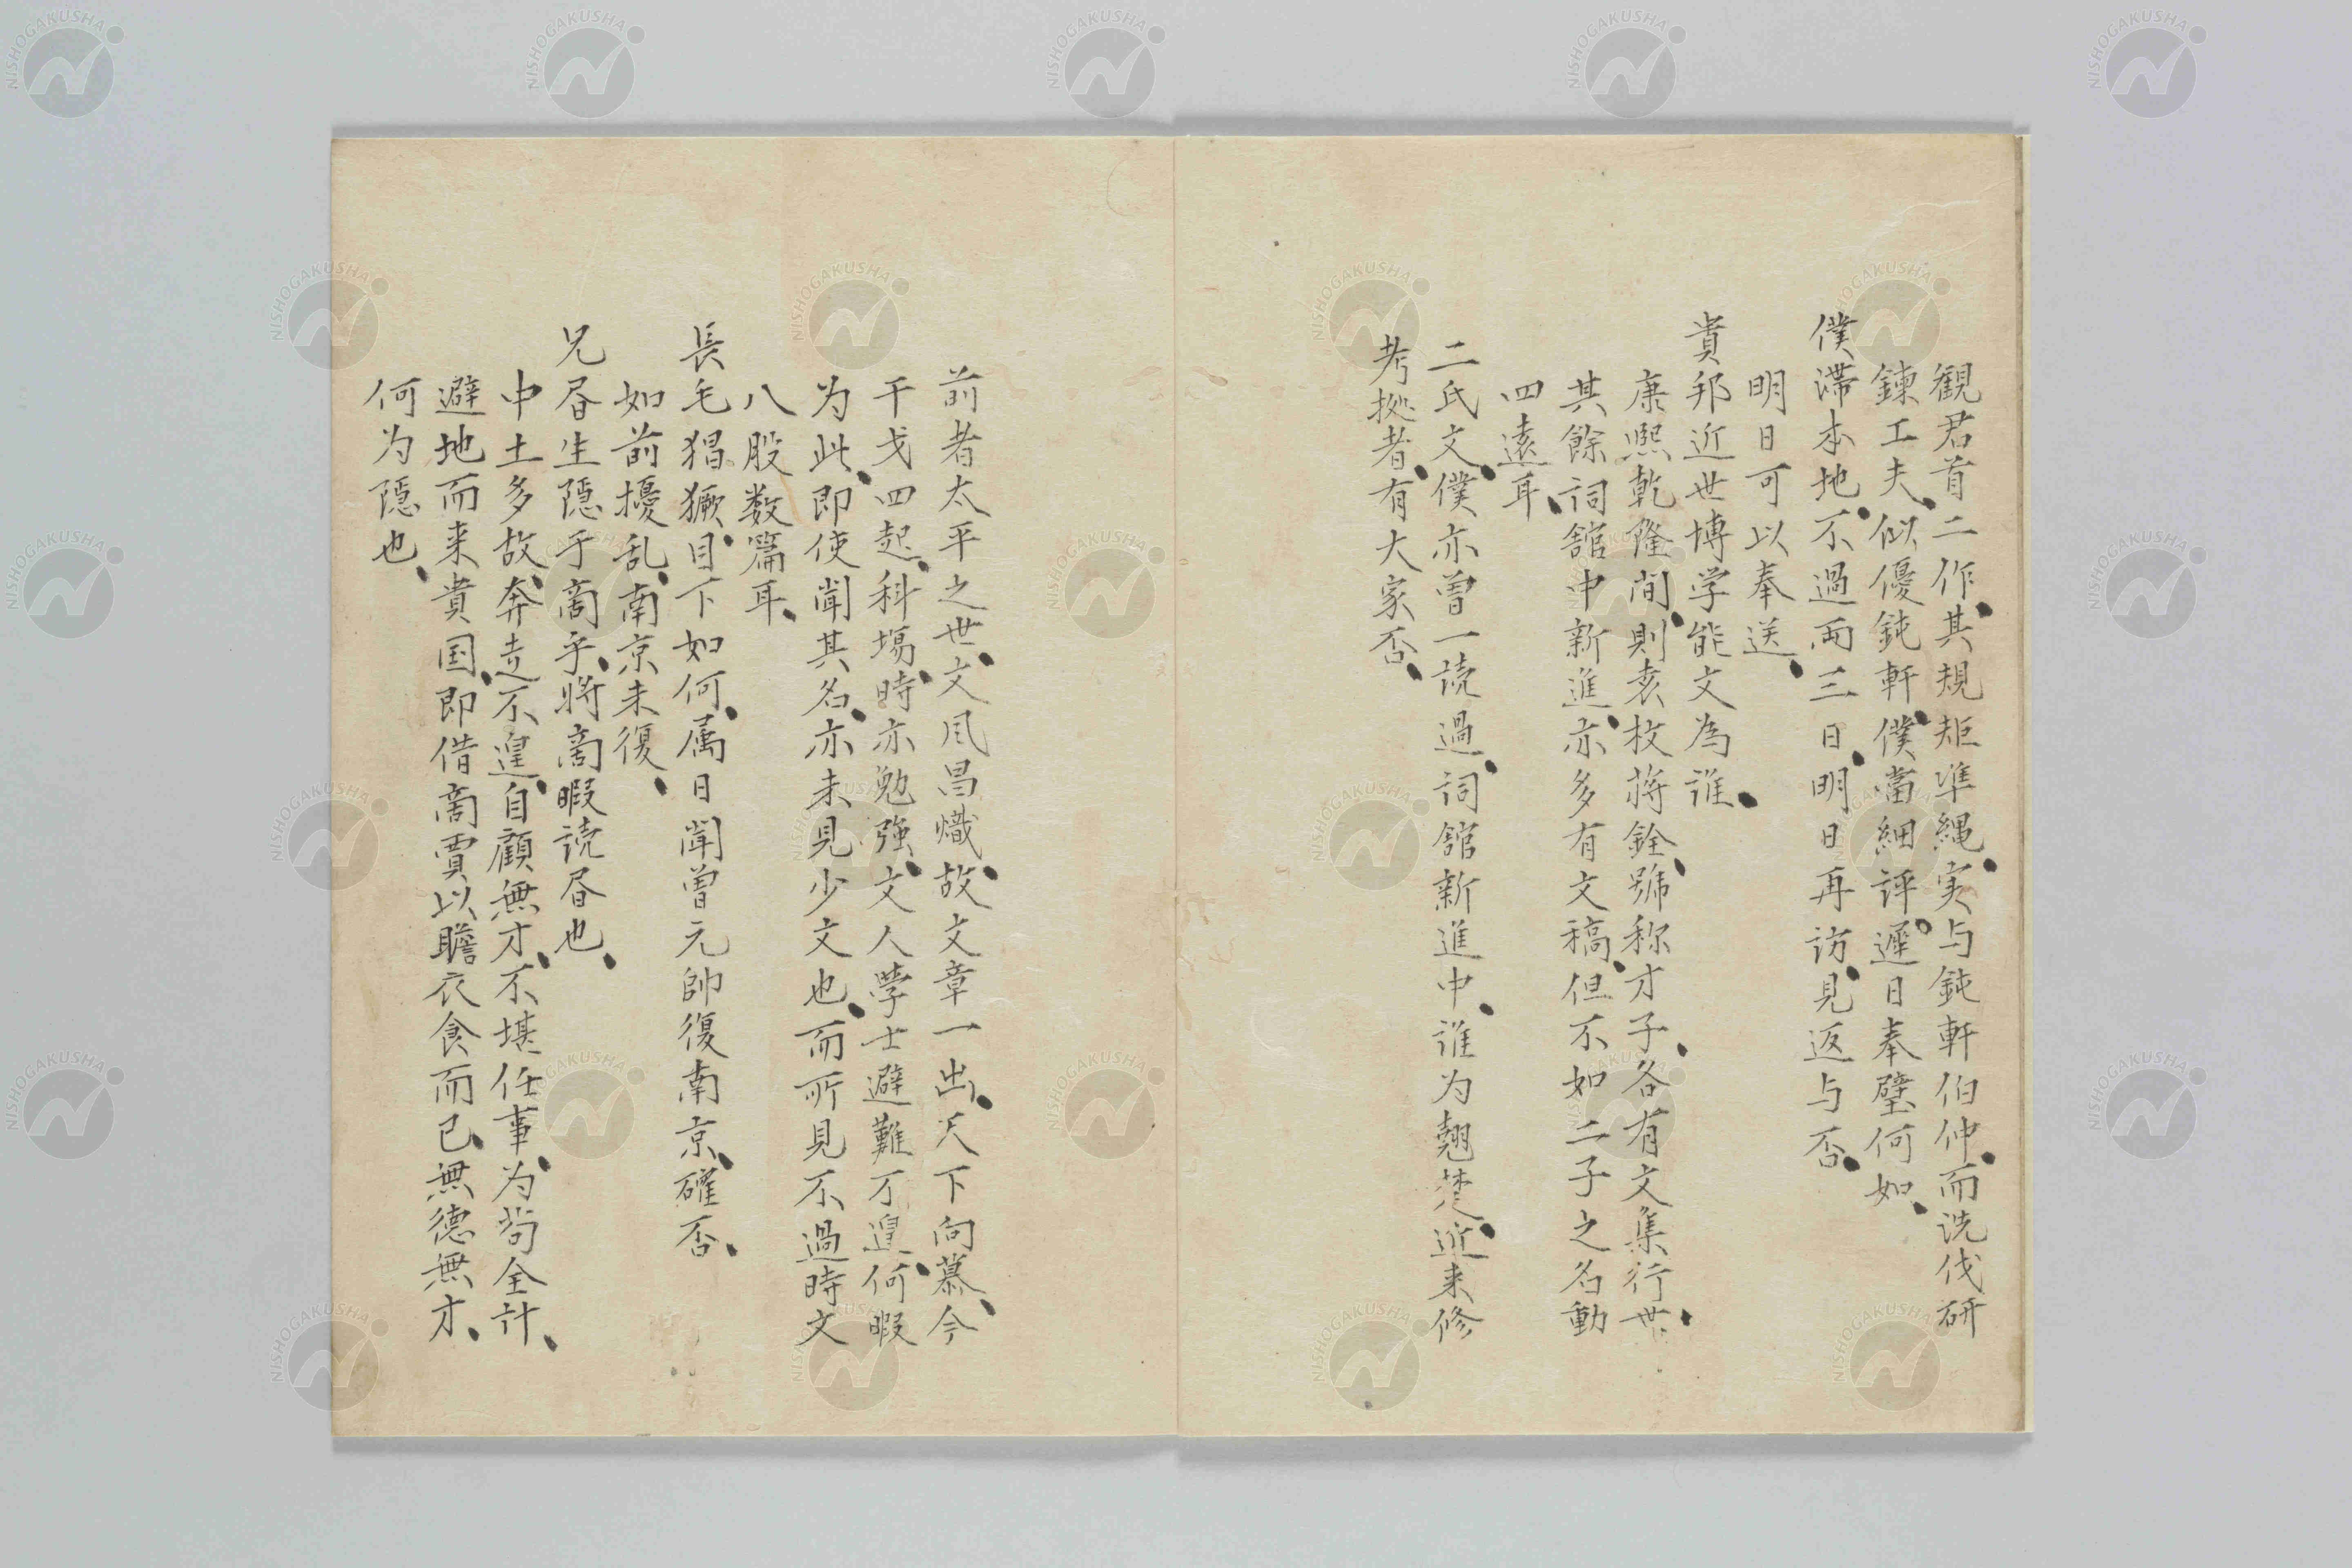 観君首二作、其規矩準縄、実与鈍軒伯仲、而洗伐研
鍊工夫、似優鈍軒、僕當細評、遲日奉璧何如、
僕滞本地、不過両三日、明日再訪、見返与否、
明日可以奉送、
貴邦近世博学能文為誰、
康熙乾隆間、則袁枚蒋銓、號称才子、各有文集行世、
其餘詞舘中新進、亦多有文稿、但不如二子之名動
四遠耳、
二氏文、僕亦曽一読過、詞舘新進中、誰为翹楚、近来修
考拠者、有大家否、
前者太平之世、文风昌熾、故文章一出、天下向慕、今
干戈四起、科場、時亦勉強、文人學士避難不遑、何暇
为此、即使聞其名、亦未見少文也、而所見不過時文
八股数篇耳、
長毛猖獗、目下如何、属日聞曽元帥復南京、確否、
如前擾乱、南京未復、
兄昼生隠于啇乎、将啇暇読昼也、
中土多故、奔走不遑、自顧無才、不堪任事、为苟全計、
避地而来貴国、即借啇賈以贍衣食而已、無徳無才、
何为隠也、